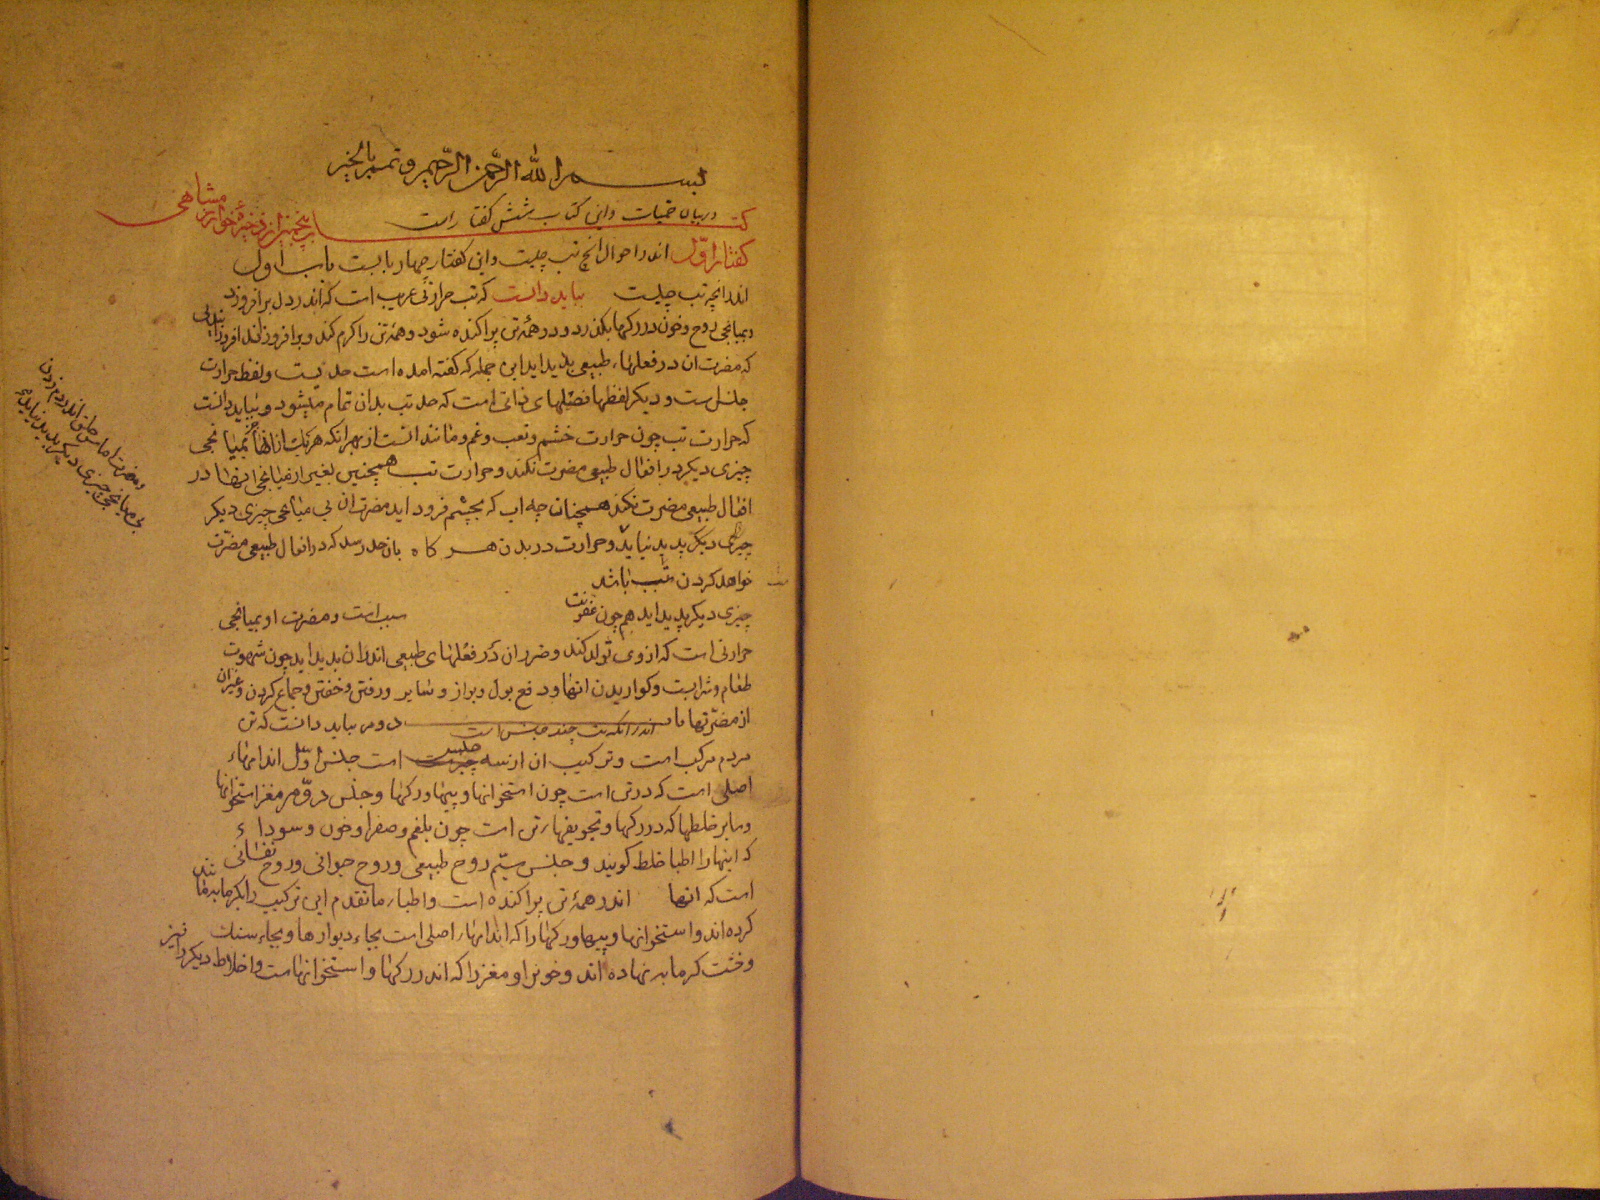 بسم الله الرّحمن الرّحيم و تمم بالخير
کتاب پنجم از ذخیرهٔ خوارزمشاهی
در بیان حمیات و این کتاب شش کفتار است
کفتار اوّل اندر احوال انچ تب چیست و این کفتار چهار بابست باب اول
اندر انچه تب چیست بباید دانست که تب حرارتی غریب است که اندر دل برافروزد
و بمیانجی روح و خون در رکها بکذرد و در همهٔ تن پراکنده شود و همهٔ تن را کرم کند و برافروزاند افروزانیدنی
که مضرت ان در فعلهاء طبیعی پدید اید این جمله که کفته امده است حد تبست و لفظ حرارت
جنس است و دیکر لفظها فصلهای ذاتی است که حد تب بدان تمام میشود و بباید دانست
که حرارت تب چون حرارت خشم و تعب و غم و مانند انست از بهر انکه هر یک از انها بمیانجی
چیزی دیکر در افعال طبیعی مضرت نکند و حرارت تب همچنین بغیر از میانجی انها در
افعال طبیعی مضرت نکند همچنان چه اب که بچشم فرود اید مضرت ان بی میانجی چیزی دیکر
چیزی دیکر پدید نیاید و حرارت در بدن هر کاه بان حد رسد که در افعال طبیعی مضرت
خواهد کردن تب باشد
چیزی دیکر پدید اید هم چون عفونت سبب است و مضرت او بمیانجی
حرارتی است که از وی تولد کند و ضرر ان در فعلهای طبیعی اندران پدید اید چون شهوت
طعام و شراب و کواریدن انها و دفع بول و براز و سایر و رفتن و خفتن و جماع کردن و غیران
از مضرّتها باب دوم اندر انکه تب چند جنس است بباید دانست که تن
مردم مرکب است و ترکیب ان از سه جنس است جنس اوّل اندامهاء
اصلی است که در تن است چون استخوانها و پیها و رکها و جنس دوّم مغز استخوانها
و سایر خلطها که در رکها و تجویفها تن است چون بلغم و صفرا و خون و سوداء
که اینها را اطبا خلط کویند و جنس سیّم روح طبیعی و روح حیوانی و روح نفسانی
است که انها اندر همهٔ تن پراکنده است و اطباء ما تقدم این ترکیب را بکرمابه
کرده اند و استخوانها و پیها و رکها را که اندامهاء اصلی است بجاء دیوارها و بجاء سنک
و خشت کرمابه نهاده اند و خون و مغز را که اندر رکها و استخوانهاست و اخلاط دیکر را نیز
و مضرت اماس حلق اندر دم زدن
بی میانجی چیزی دیکر پدید نیاید